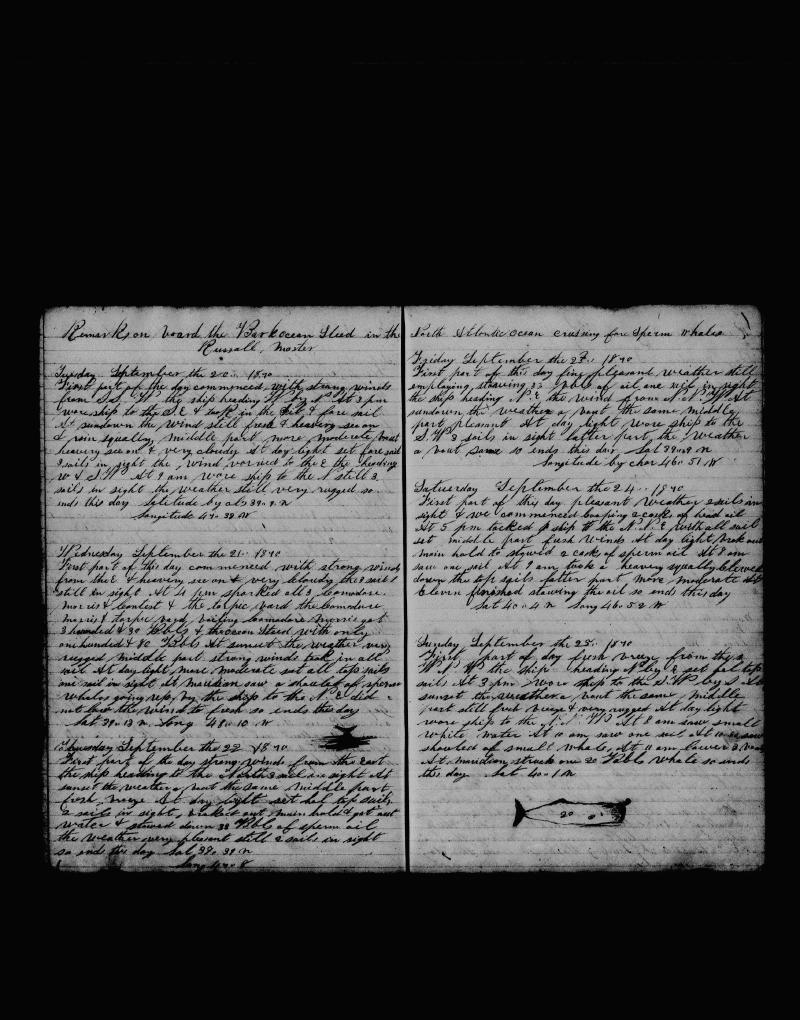 Remarks on board the Bark ocean Steed in the
Russall, Master
Tuesday September the 20.. 1870
First part of the day commenced with strong winds
from S.S. W. the ship heading W. by N. At 3 pm
wore ship to the S.E & took in the & fore sail
At sundown the wind still fresh & heavey sea on
& rain squally, middle part more moderate but
heavey sea on & very cloudy At day light set fore sail
3 sails in sight the wind to the E the heading
W & S.W. At 9 am wore ship to the N still 3
sails in sight the weather still very rugged so
ends this day latitude by obs 39..9. N
Longitude 47.. 39 W
Wednesday September the 21.. 1870
First part of this day commenced with strong winds
from the E & heavey sea on & very cloudy the 3 sails
still in sight At 4 pm spoke all 3 Comodore
morris & Contest & the board the Comodore
morris & board, Comodore Morris got
3 hundred & 30 Bbls & the ocean Steed with only
one hundred & 80 Bbls At sunset the weather very
rugged middle part strong winds took in all
sail At day light more moderate set all top sails
one sail in sight at meridian saw a shoal of sperm
whales going up, by the ship to the N. E did
not low the wind to fresh so ends the day
Lat 39..13 N. Long 48.. 10 W
Thursday September the 22 1870
First part of the day strong winds from the East
the ship heading to the North 3 sail in sight At
sunset the weather a bout the same middle part
fresh breze At day light set top sails
2 sails in sight, out main hold & got out
water & stowed down 33 Bbls of sperm oil
the weather very pleasant still 2 sails in sight
so ends this day Lat 39.. 39 N
Long
North Atlantic ocean cruising fore Sperm Whales
Friday September the 23.. 1870
First part of this day fine pleasant weather still
employing, stowing 33 Bbls of oil one in sight
the ship heading N. E the wind from N. N. W. At
sundown the weather a bout the same middle
part pleasant At day light wore ship to the
S.W 3 sails in sight latter part the weather
a bout same so ends this day Lat 39..49 N
Longitude by chor 46.. 51 W
Saturday September the 24.. 1870
First part of this day pleasant weather 2 sails in
sight & we commenced 2 cask of head oil
At 5 pm tacked ship to the N. N. E with all sail
set middle part fresh winds At day light brok out
main hold to stowed 2 cask of sperm oil At 8 am
saw one sail At 9 am took a heavey squally
down the top sails latter part more moderate At
Eleven finished stowing the oil so ends this day
Lat 40..4 N Long 46.. 52 W
Sunday September the 25.. 1870
First part of day fresh breze from the
W. N. W the ship heading N by E set top
sails At 3 pm wore ship to the S. W by S At
sunset the weather a bout the same middle
part still fresh breze & very rugged At day light
wore ship to the N. N. W At 8 am saw small
white water At 10 am saw one sail At 10
shoal of small whale, At 11 am lower 3 boats
At meridian struck one 20 Bbls Whale so ends
this day Lat 40..1 N
20